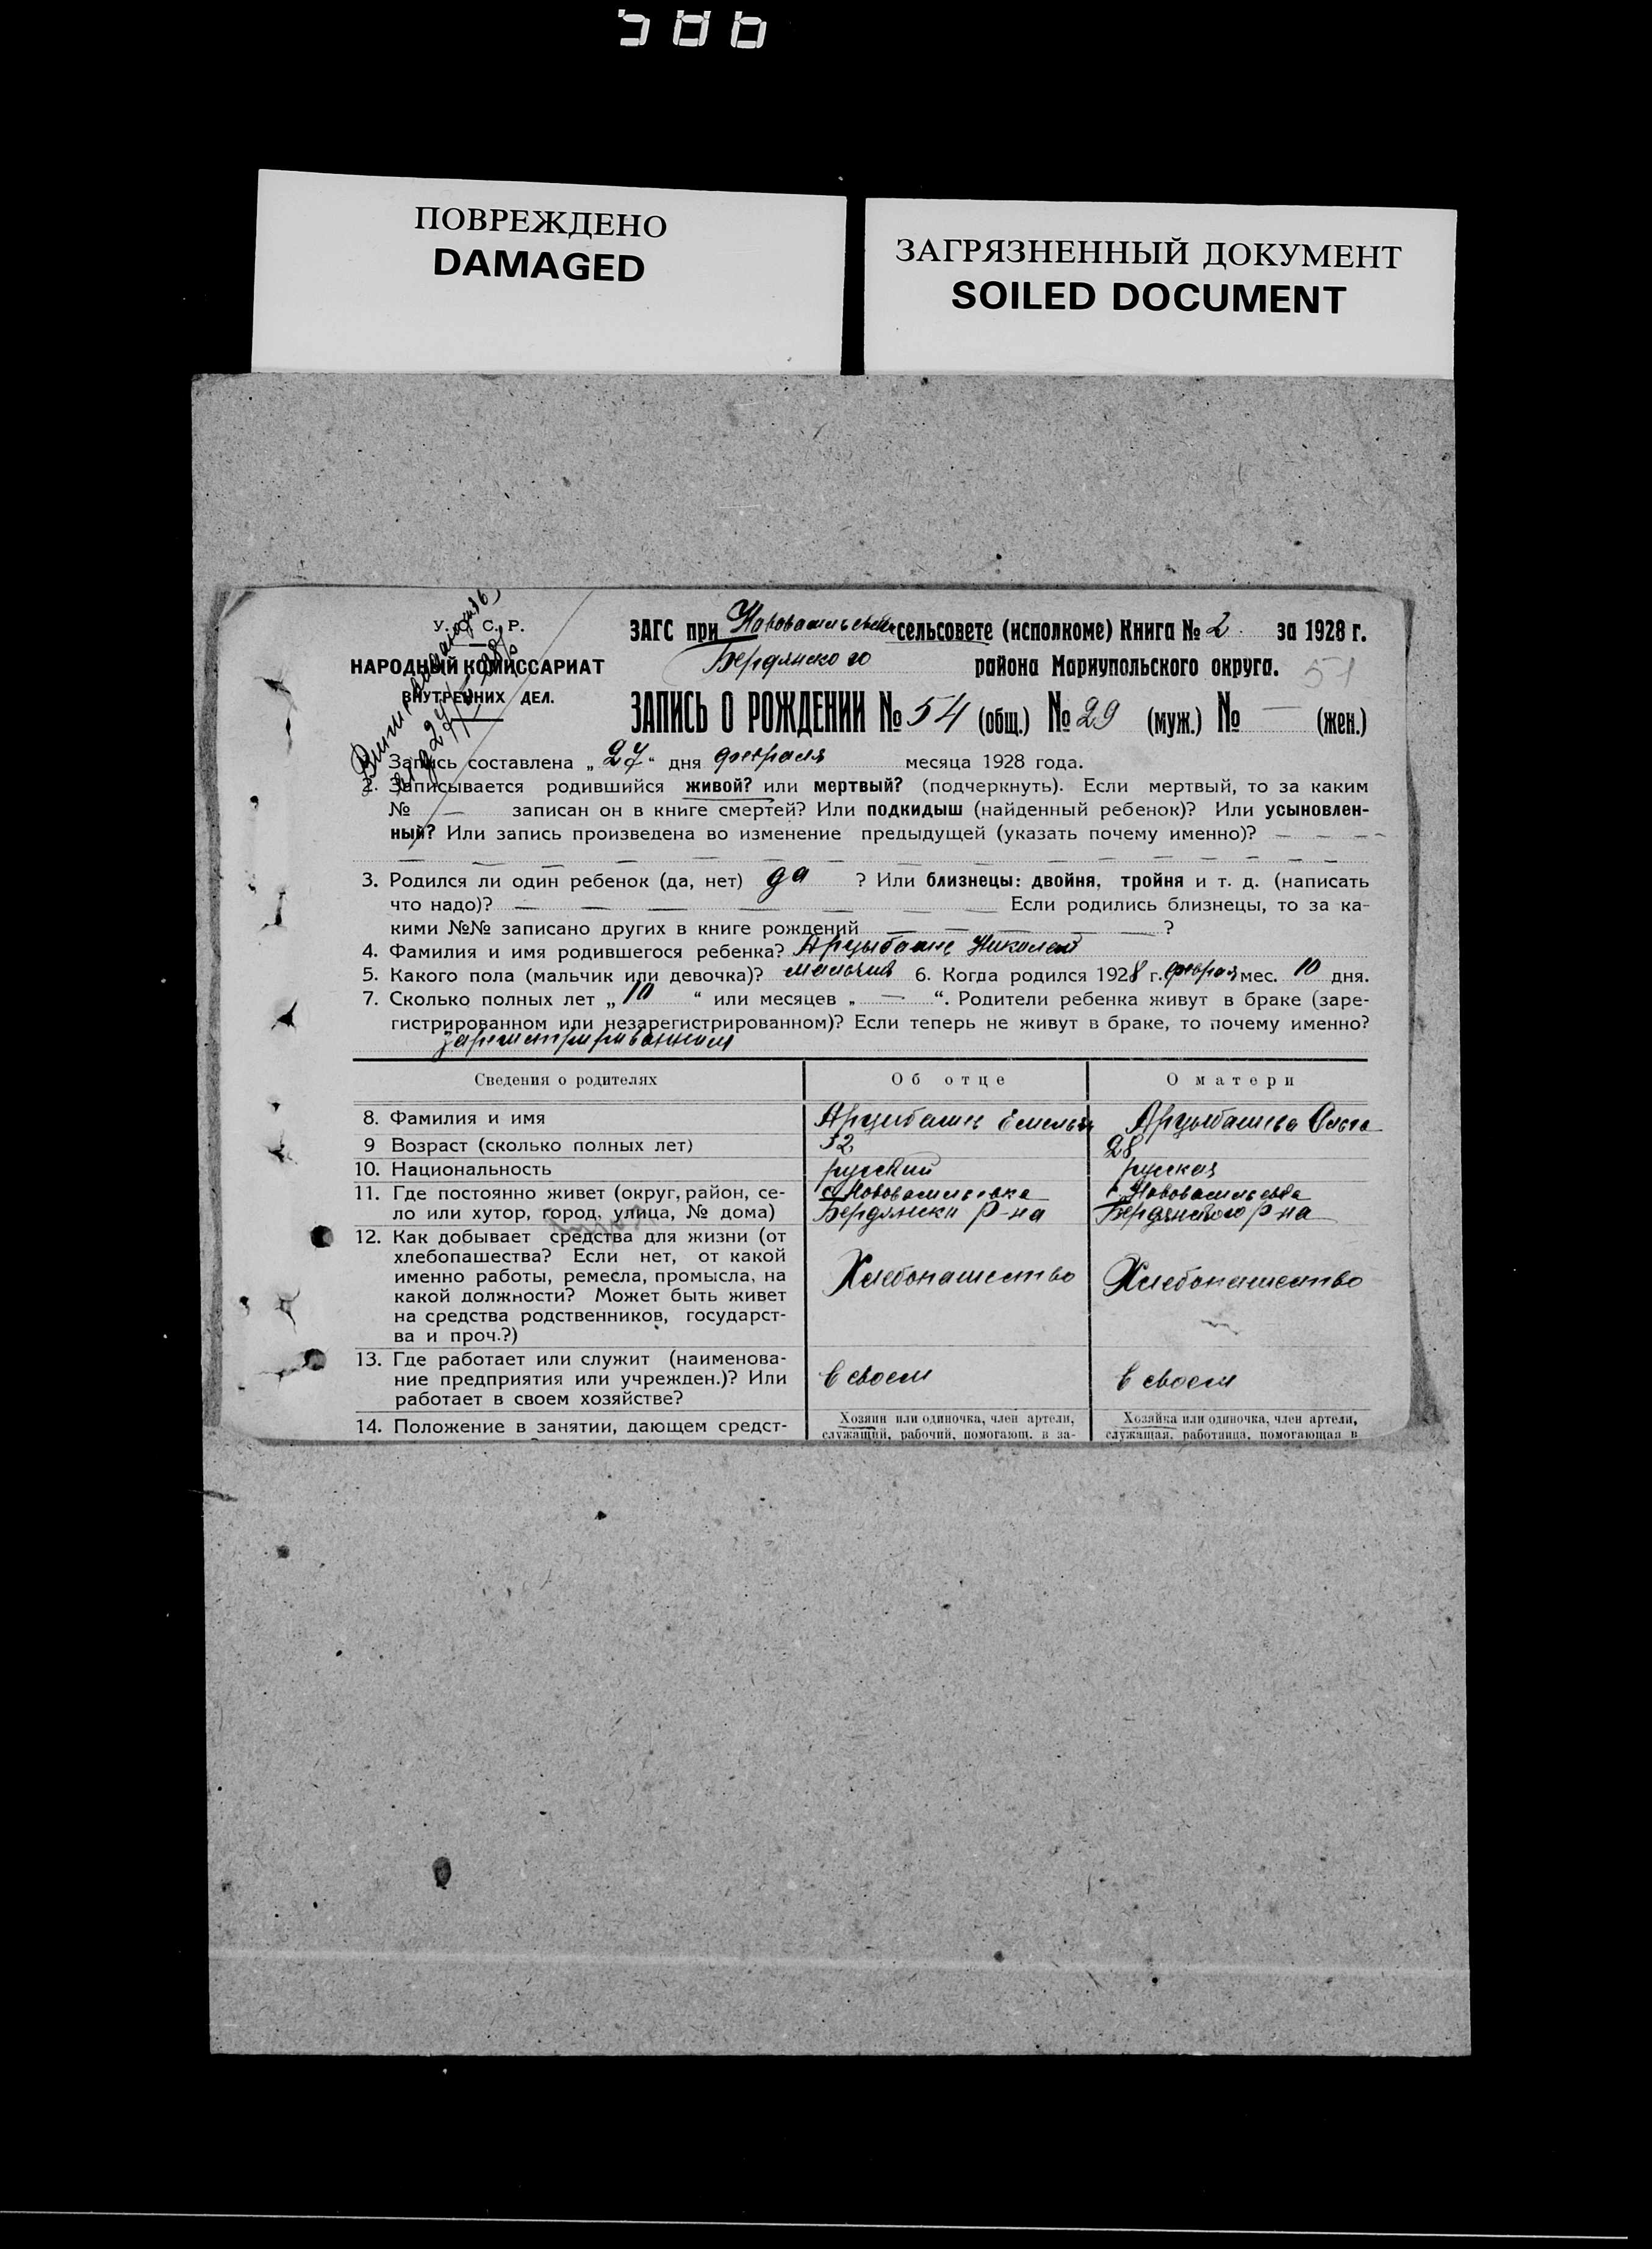 ПОВРЕЖДЕНО
DAMAGED
ЗАГРЯЗНЕННЫЙ ДОКУМЕНТ
SOILED DOCUMENT
У. С. С. Р.
НАРОДНЫЙ КОМИССАРИАТ
ВНУТРЕННИХ ДЕЛ.
ЗАГС при Нововасильевск сельсовете (исполкоме) Книга № 2. за 1928 г.
Бердянского района Мариупольского округа.
51
ЗАПИСЬ О РОЖДЕНИИ № 54 (общ.) № 29 (муж.) № — (жен.)
Запись составлена „27“ дня февраля месяца 1928 года.
2. Записывается родившийся живой? или мертвый? (подчеркнуть). Если мертвый, то за каким
№ — записан он в книге смертей? Или подкидыш (найденный ребенок)? Или усыновлен-
ный? Или запись произведена во изменение предыдущей (указать почему именно)? — — — —
3. Родился ли один ребенок (да, нет) да ? Или близнецы: двойня, тройня и т. д. (написать
что надо)? — — — — — — Если родились близнецы, то за ка-
кими №№ записано других в книге рождений — — — — — ?
4. Фамилия и имя родившегося ребенка? Арцыбашев Николай
5. Какого пола (мальчик или девочка)? мальчик 6. Когда родился 1928 г. февраля мес. 10 дня.
7. Сколько полных лет „10 “ или месяцев „ — “. Родители ребенка живут в браке (заре-
гистрированном или незарегистрированном)? Если теперь не живут в браке, то почему именно?
зарегистрированном
Сведения о родителях Об отце О матери
8. Фамилия и имя Арцыбашев Емельян Арцыбашева Ольга
9 Возраст (сколько полных лет) 32 28
10. Национальность русский русская
11. Где постоянно живет (округ, район, се- с. Нововасильевка с. Нововасильевка
ло или хутор, город, улица, № дома) Бердянски р-на Бердянского р-на
12. Как добывает средства для жизни (от
хлебопашества? Если нет, от какой
именно работы, ремесла, промысла, на Хлебопашество Хлебопашество
какой должности? Может быть живет
на средства родственников, государст-
ва и проч.?)
13. Где работает или служит (наименова-
ние предприятия или учрежден.)? Или в своем в своем
работает в своем хозяйстве?
14. Положение в занятии, дающем средст- Хозяин или одиночка, член артели, Хозяйка или одиночка, член артели,
служащий, рабочий, помогающ. в за- служащая, работница, помогающая в